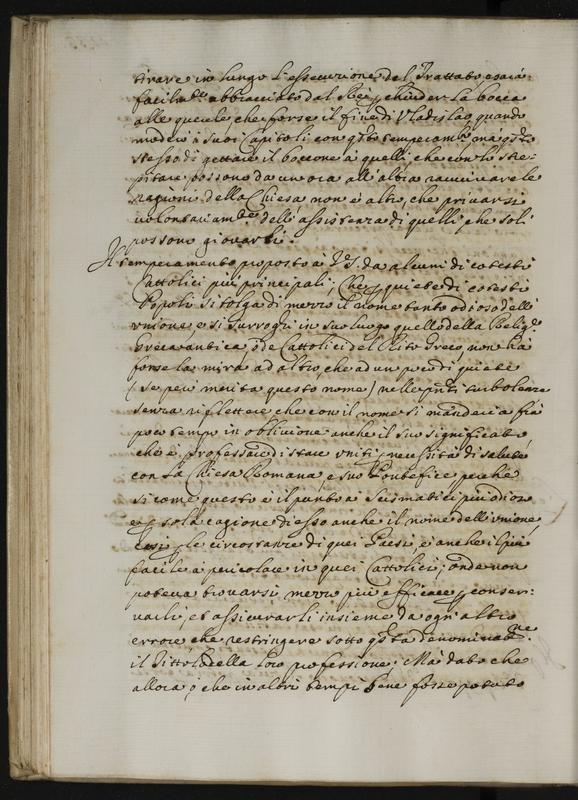 tirare in lungo l'essecuzione del Trattato e sarà
facilm.te abbracciato dal Rè p chiuder la bocca
alle querele che forse il fine di Vladislao quando
moderò i suoi Capitoli con q.sto temperam.to, mà q.sto
stesso di gettare il boccone à quelli, che con lo stre-
pitare possono da un'ora all'altra ravvivare le
ragioni della Chiesa non è altro, che privarsi
volontariam.te dell'assistenza di quelli che soli
possono giovarli.
Il temperamento proposto a V.S. da alcuni di cotesti
Cattolici più principali, che p quiete di cotesti
Popoli si tolga di mezzo il nome tanto odioso dell'
unione e si surroghi in suo luogo quello della Relig.e
Greca antica, ò de Cattolici del Rito Greco, non hà
forse la mira ad altro, che ad un poco di quiete
(se però merita questo nome) nelle p.nti turbolenze
senza riflettere che con il nome si manderia frà
poco tempo in oblivione anche il suo significato
che è professare di stare uniti p necessità di salute
con la Chiesa Romana, e suo Pontefice, perche
si come questo è il punto à Scismatici più odioso
e p sola cagione di esso anche il nome dell'unione,
così p le circostanze di quei Paesi, è anche il più
facile à pericolare in quei Cattolici; onde non
poteva trovarsi mezzo più efficace p conser-
varli, et assicurarli insieme da ogni altro
errore che restringere sotto q.sta denominaz.ne
il Titolo della loro professione. Mà dato che
allora, ò che in altri tempi bene fosse potuto